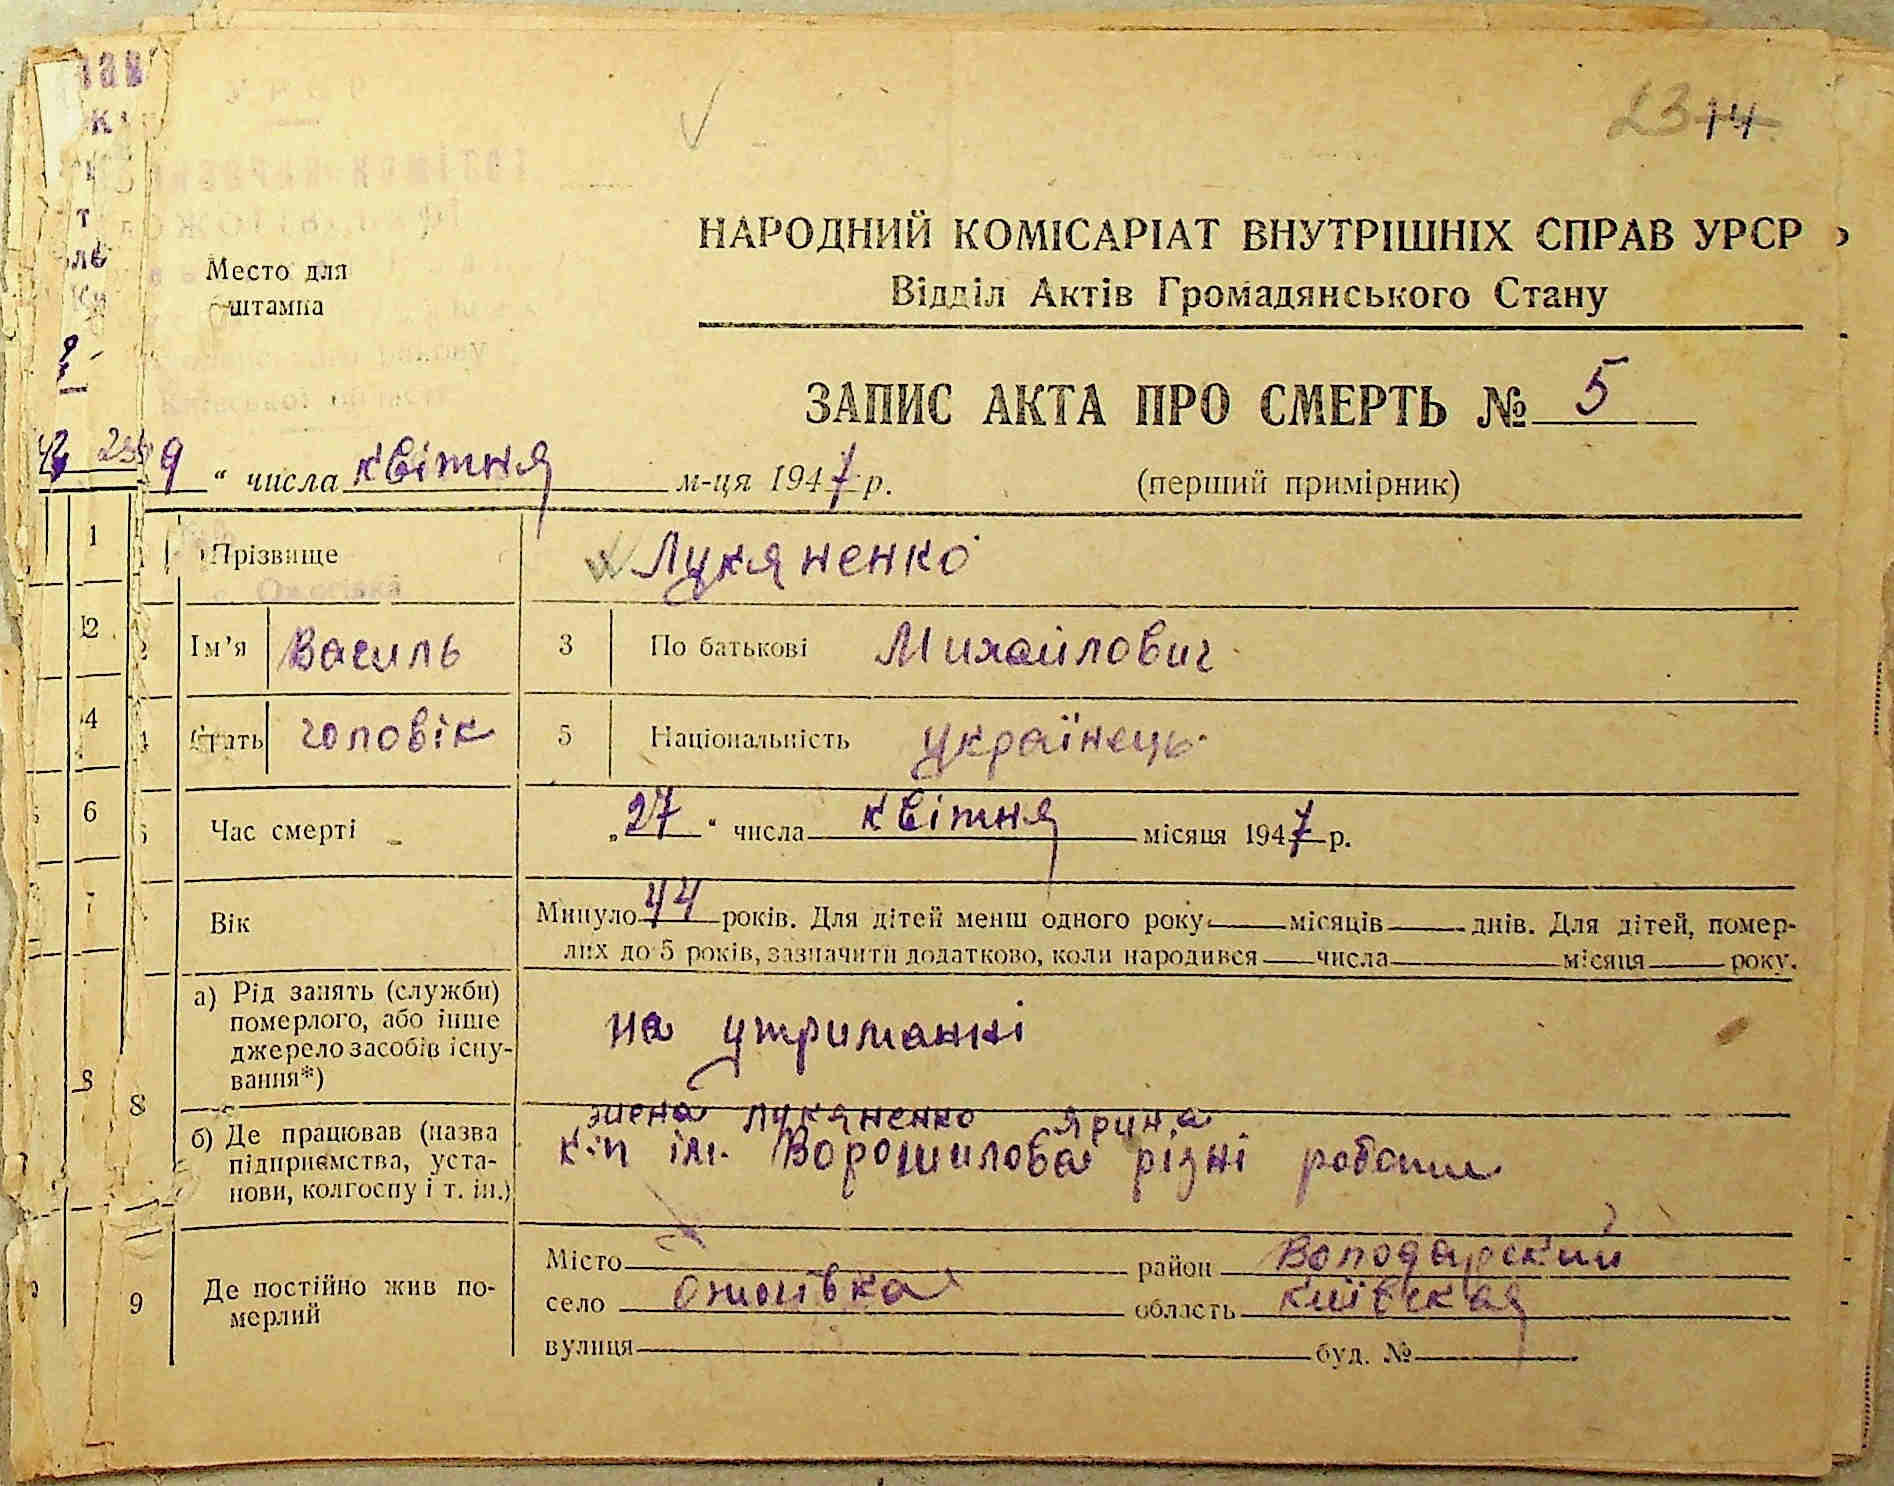 23 14
НАРОДНИЙ КОМІСАРІАТ ВНУТРІШНІХ СПРАВ УРСР
Відділ Актів Громадянського Стану
Место для
штампа
ЗАПИС АКТА ПРО СМЕРТЬ № 5
9 " числа квітня м-ця 1947 р. (перший примірник)
1 Прізвище Лукяненко
2 Ім'я Василь 3 По батькові Михайлович
4 Стать чоловік 5 Національність українець
6 Час смерті „27" числа квітня місяця 1947 р.
7 Вік Минуло 44 років. Для дітей менш одного року місяців днів. Для дітей, помер-
лих до 5 років, зазначити додатково, коли народився числа місяця року.
8 а) Рід занять (служби)
померлого, або інше
джерело засобів існу-
вання*)
на утриманні
жена Лукяненко Ярина
б) Де працював (назва
підприємства, уста-
нови, колгоспу і т. ін.)
к-п ім. Ворошилова різні роботи
9 Де постійно жив по-
мерлий
Місто район Володарский
село Ожогівка область київская
вулиця буд. №